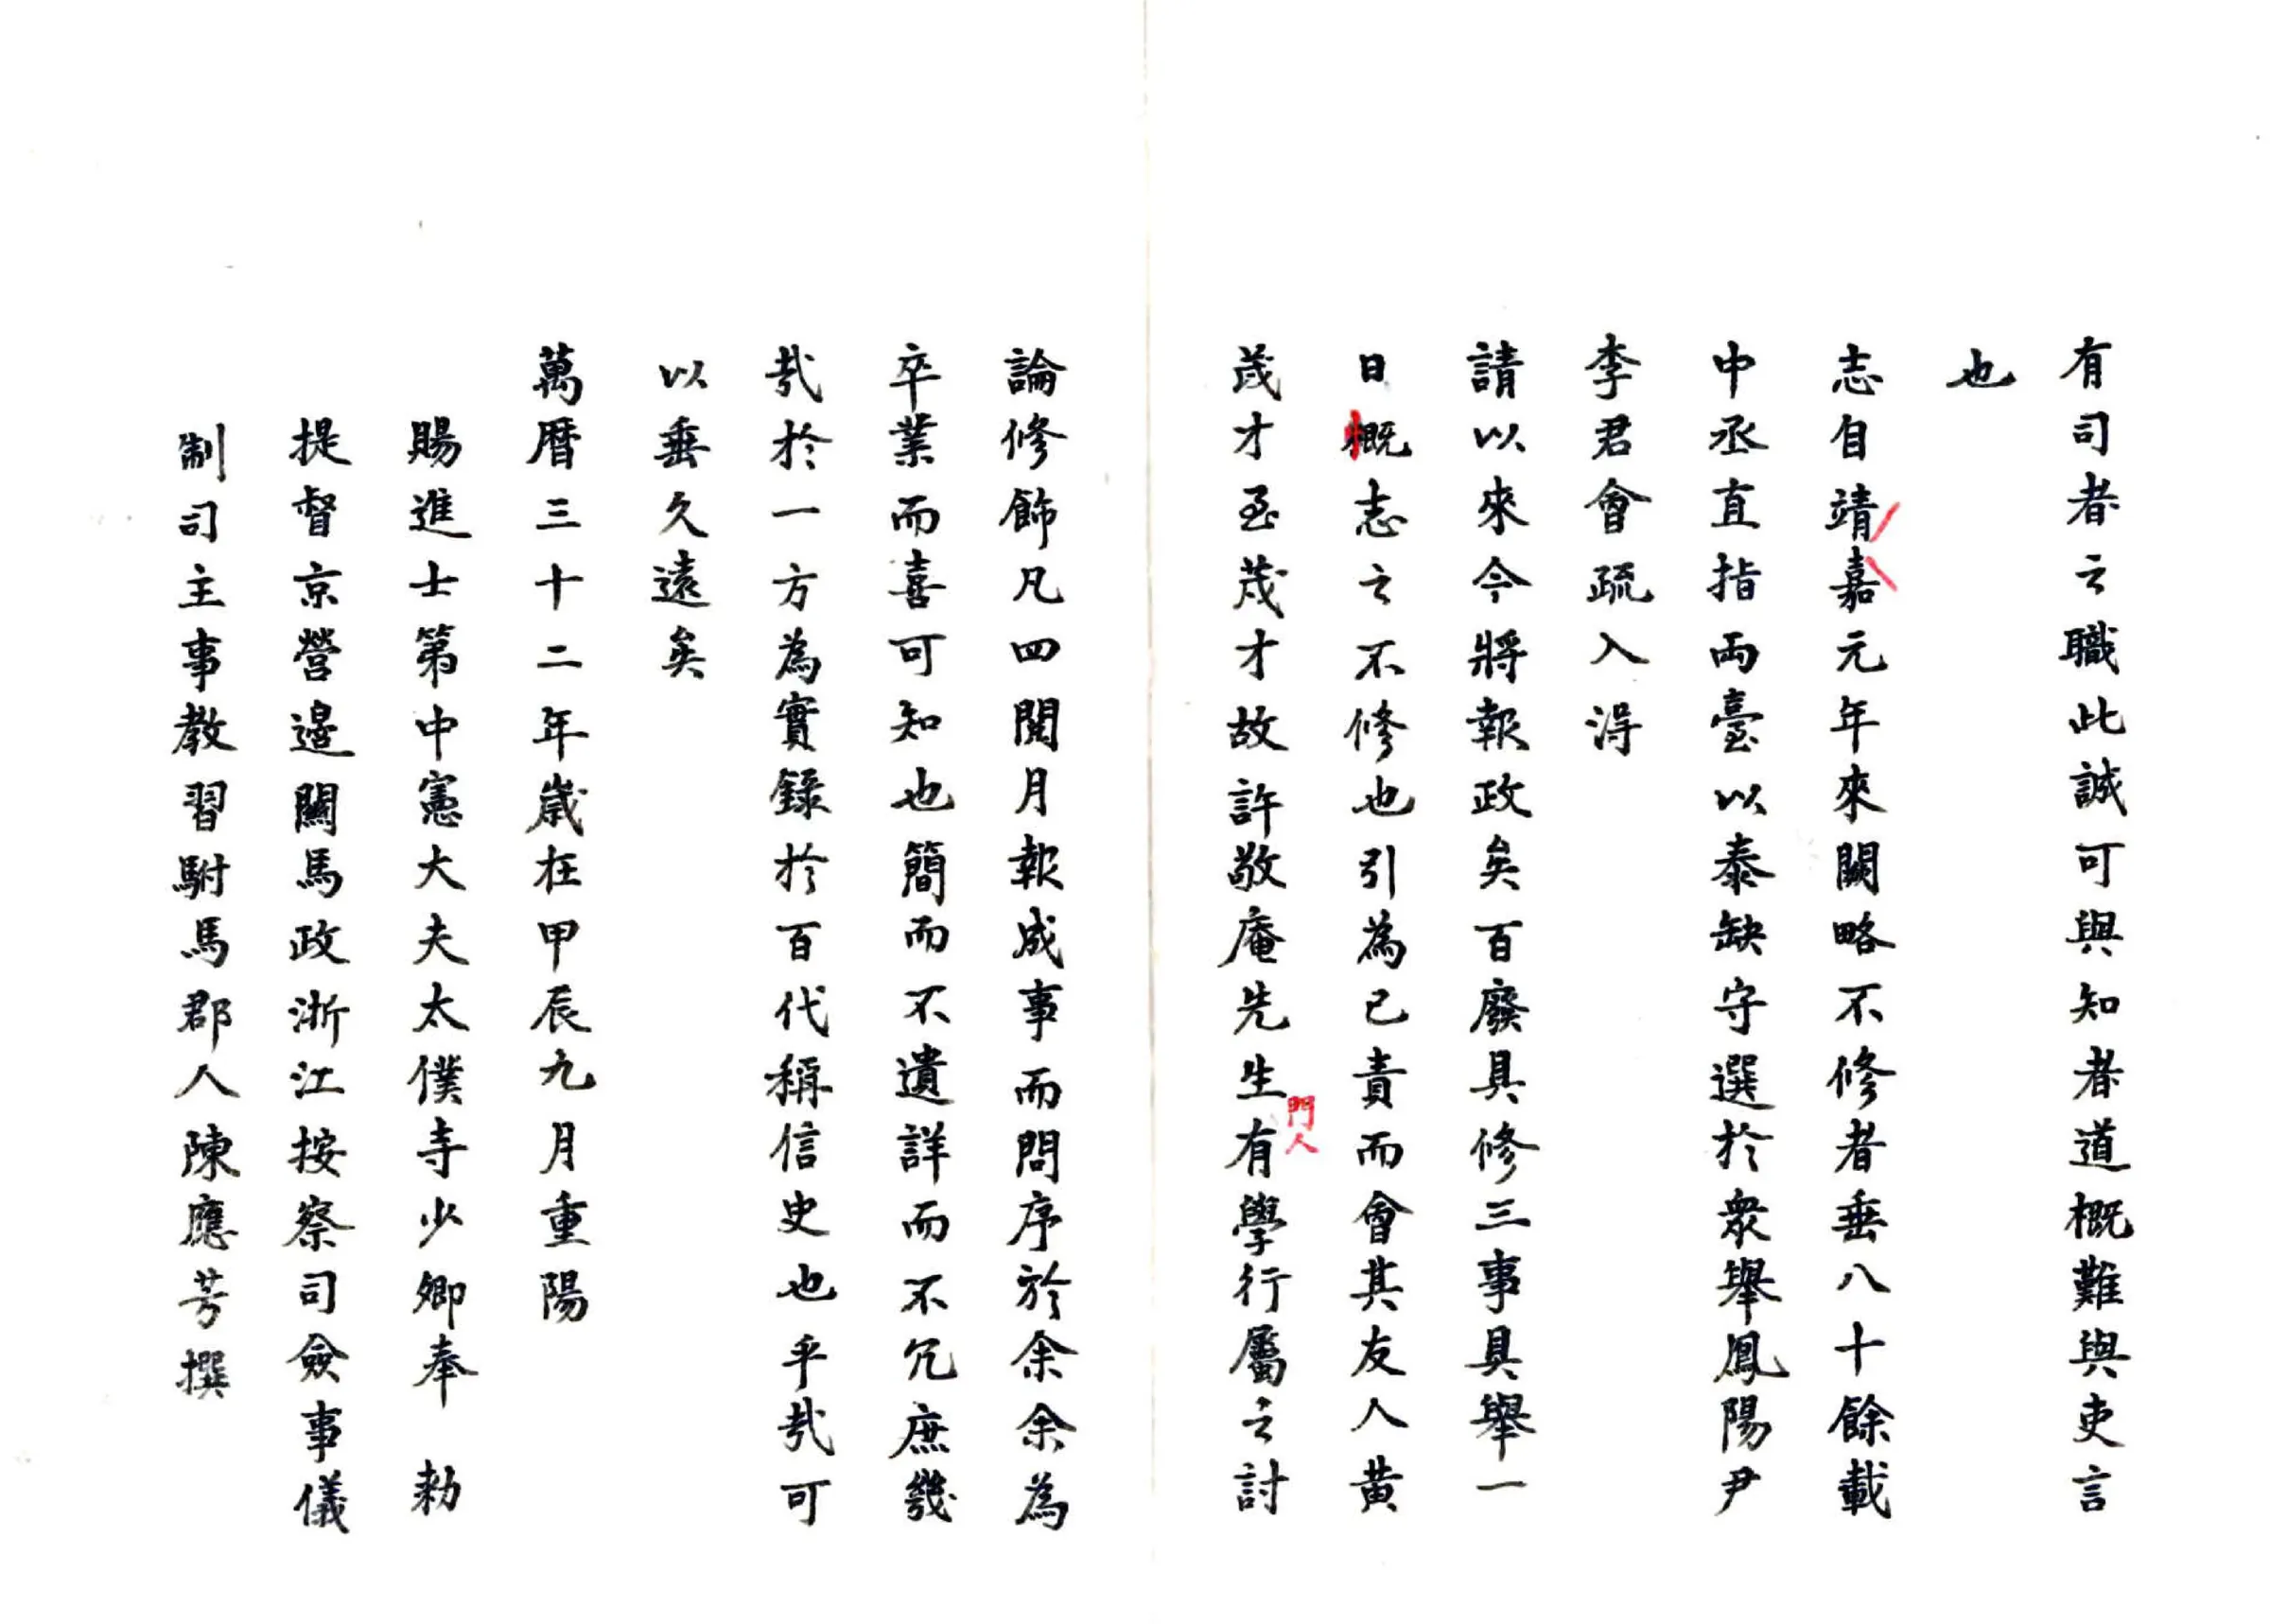 有司者云職此誠可與知者道概難與吏言
也
志自靖嘉元年來闕略不修者垂八十餘載
中丞直指両臺以泰缺守選於衆舉鳳陽尹
李君會疏入淂
請以來今將報政矣百廢具修三事具舉一
日概志之不修也引為已責而會其友人黄
茂才至茂才故許敬庵先生有學行屬云討
門人
論修飾凡四閱月報成事而問序於余余為
卒業而喜可知也簡而不遺詳而不冗庶幾
哉於一方為實錄於百代稱信史也乎哉可
以垂久遠矣
萬曆三十二年歲在甲辰九月重陽
賜進士第中憲大夫太僕寺少卿奉 勅
提督京營邊關馬政浙江按察司僉事儀
制司主事教習駙馬郡人陳應芳撰